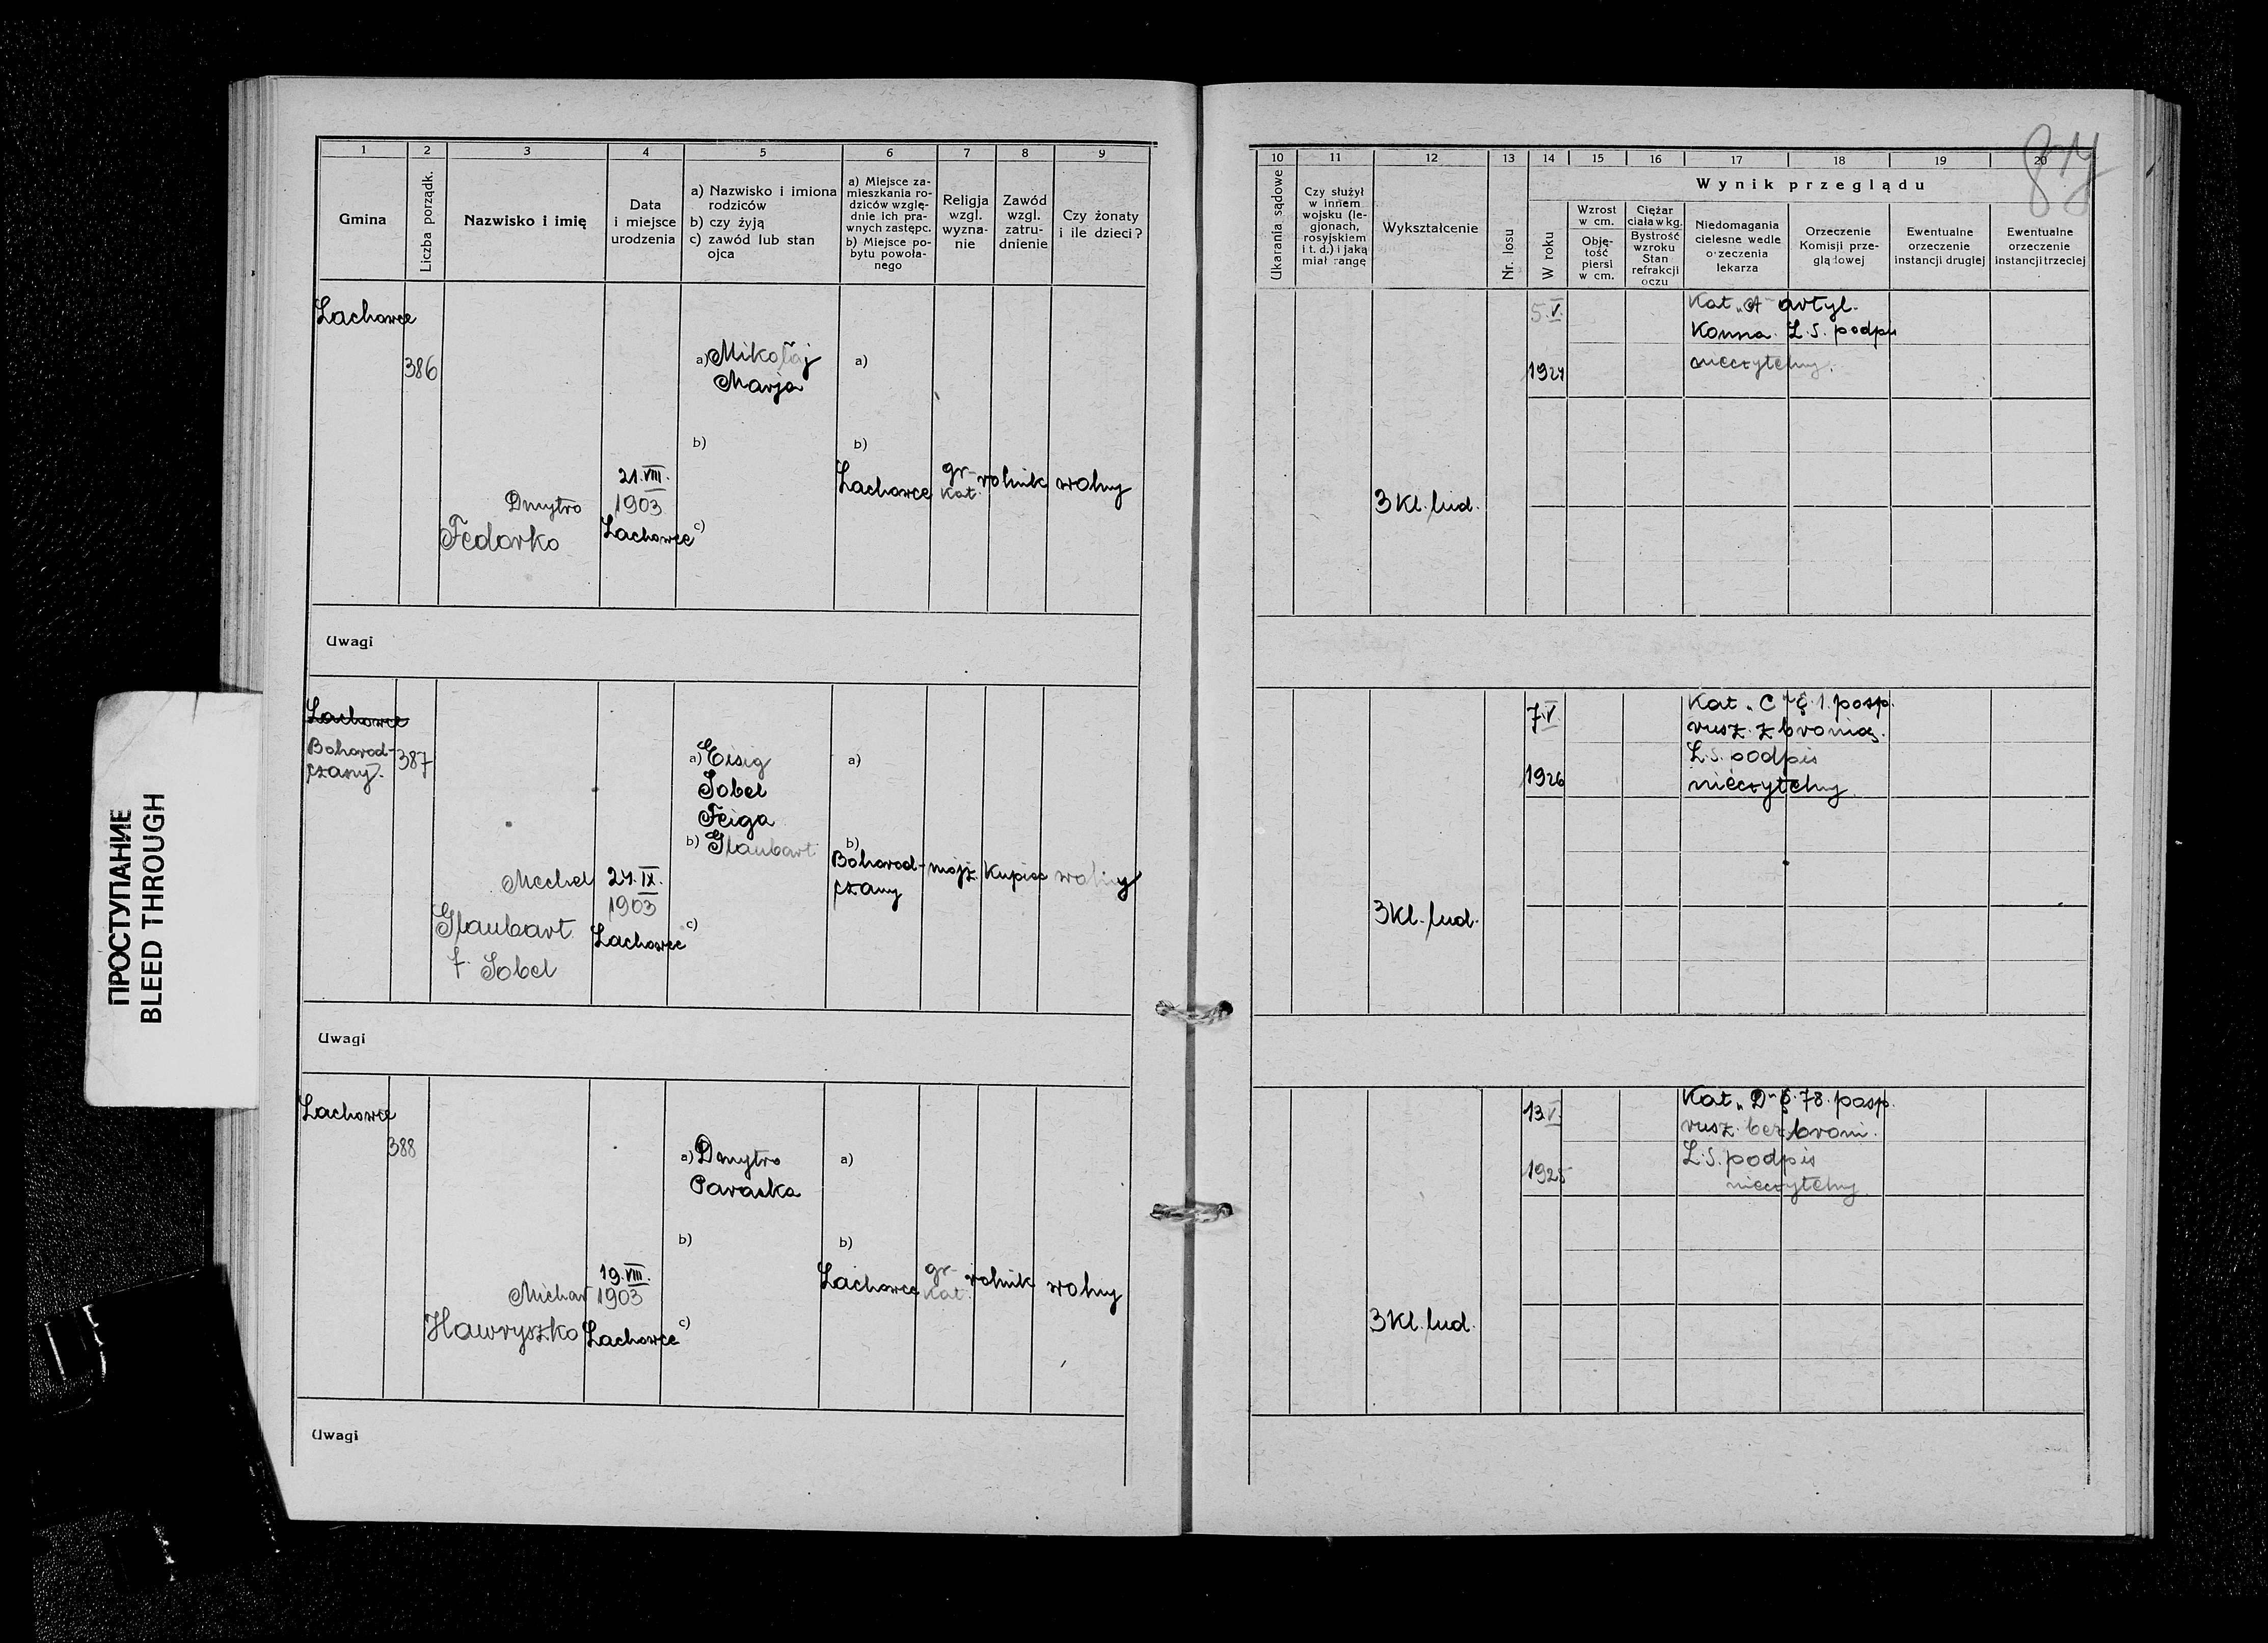 87
1 2 3 4 5 6 7 8 9
Gmina
Liczba porządk.
Nazwisko i imię
Data
i miejsce
urodzenia
a) Nazwisko i imiona
rodziców
b) czy żyją
c) zawód lub stan
ojca
a) Miejsce za-
mieszkania ro-
dziców wzglę-
dnie ich pra-
wnych zastępc.
b) Miejsce po-
bytu powoła-
nego
Religja
wzgl.
wyzna-
nie
Zawód
wzgl.
zatru-
dnienie
Czy żonaty
i ile dzieci?
10 11 12 13 14 15 16 17 18 19 20
Ukarania sądowe
Czy służył
w innem
wojsku (le-
gjonach,
rosyjskiem
i t. d.) i jaką
miał rangę
Wykształcenie
Nr. losu
W roku
Wynik przeglądu
Wzrost
w cm.
Obję-
tość
piersi
w cm.
Ciężar
ciała w kg.
Bystrość
wzroku
Stan
refrakcji
oczu
Niedomagania
cielesne wedle
o zeczenia
lekarza
Orzeczenie
Komisji prze-
glądowej
Ewentualne
orzeczenie
instancji drugiej
Ewentualne
orzeczenie
instancji trzeciej
Lachowce
386
Dmytro
Fedorko
21.VIII.
1903
Lachowce
a) Mikołaj
Marja
b)
c)
a)
b)
Lachowce
gr-
kat.
rolnik
wolny
3 kl. lud.
5.V.
1924
Kat. „A" artyl.
Konna. L.S. podpis
nieczytelny.
Uwagi
Lachowce
Bohorod-
czany.
387
Mechel
Glaubart
f. Sobel
24.IX.
1903
Lachowce
a) Eisig
Sobel
Feiga
b) Glaubart
c)
a)
b)
Bohorod-
czany
mojż.
Kupiec
wolny
3 kl. lud.
7.V.
1926
Kat. „C" §. 1. posp.
rusz. z bronią.
L.S. podpis
nieczytelny
Uwagi
Lachowce
388
Michał
Hawryszko
19.VIII.
1903
Lachowce
a) Dmytro
Paraska
b)
c)
a)
b)
Lachowce
gr-
kat.
rolnik
wolny
3 kl. lud.
13.V.
1925
Kat. „D" §. 78. posp.
rusz. bez broni.
L.S. podpis
nieczytelny.
Uwagi
ПРОСТУПАНИЕ
BLEED THROUGH